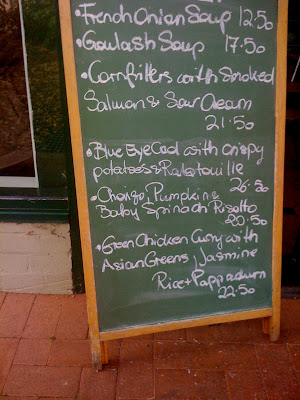 • French Onion Soup 12.50
• Goulash Soup 17.50
• Cornfritters with Smoked
Salmon & Sour Cream
21.50
• Blue Eye Cod with crispy
potatoes & Ratatouille
26.50
• Chorizo, Pumpkin &
Baby Spinach Risotto
20.50
• Green Chicken Curry with
Asian Greens, Jasmine
Rice + Pappadum
22.50